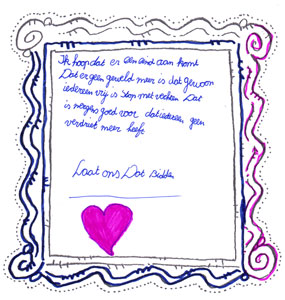 Ik hoop dat er een eind aan komt
Dat er geen geweld meer is dat gewoon
iedereen vrij is stop met vechten Dat
is nergens goed voor dat iedereen geen
verdriet meer heeft
Laat ons Dat Bidden